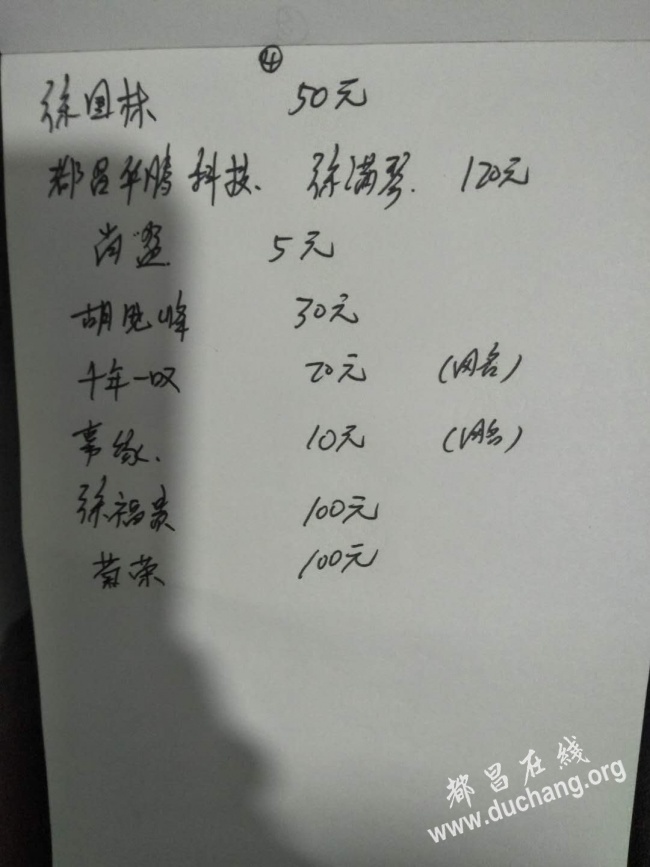 ④
徐国林 50元
都昌华腾科技. 徐满琴. 120元
5元
胡晓峰 30元
千年一叹 20元 (网名)
事缘. 10元 (网名)
徐福贵 100元
菊荣 100元
都昌在线
www.duchang.org